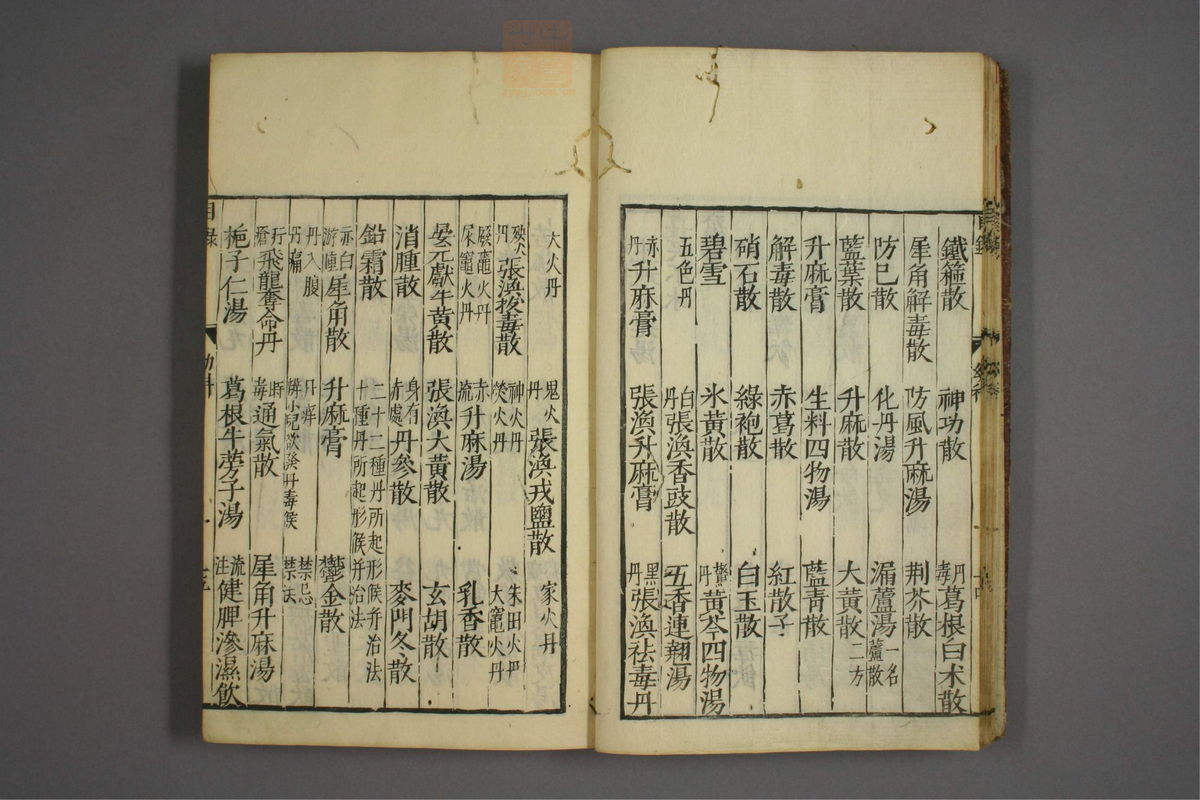 鐵箍散 神功散 丹毒葛根白朮散
犀角解毒散 防風升麻湯 荆芥散
防巳散 化丹湯 漏蘆湯一名蘆散
藍葉散 升麻散 大黃散二方
升麻膏 生料四物湯 藍靑散
解毒散 赤葛散 紅散子
硝石散 綠袍散 白玉散
碧雪 氷黃散 驚丹黃芩四物湯
五色丹 白丹張渙香豉散 五香連翹湯
赤丹升麻膏 張渙升麻膏 黑丹張渙祛毒丹
大火丹 鬼火丹張渙戎鹽散 家火丹
張渙拔毒散 神火丹 熒火丹 朱田火丹 大竈火丹
厥竈火丹 尿竈火丹 赤流升麻湯 乳香散
晏元獻牛黃散 張渙大黃散 玄胡散
消腫散 身有赤處丹參散 麥門冬散
鉛霜散 二十二種丹所起形候并治法 十種丹所起形候并治法
赤白遊腫犀角散 升麻膏 鬱金散
丹入腹 丹痛 丹癢 辨小兒欲發丹毒候 禁忌 禁
飛龍奪命丹 時毒通氣散 犀角升麻湯
梔子仁湯 葛根牛蒡子湯 流注健脾滲濕飲
目錄 幼科